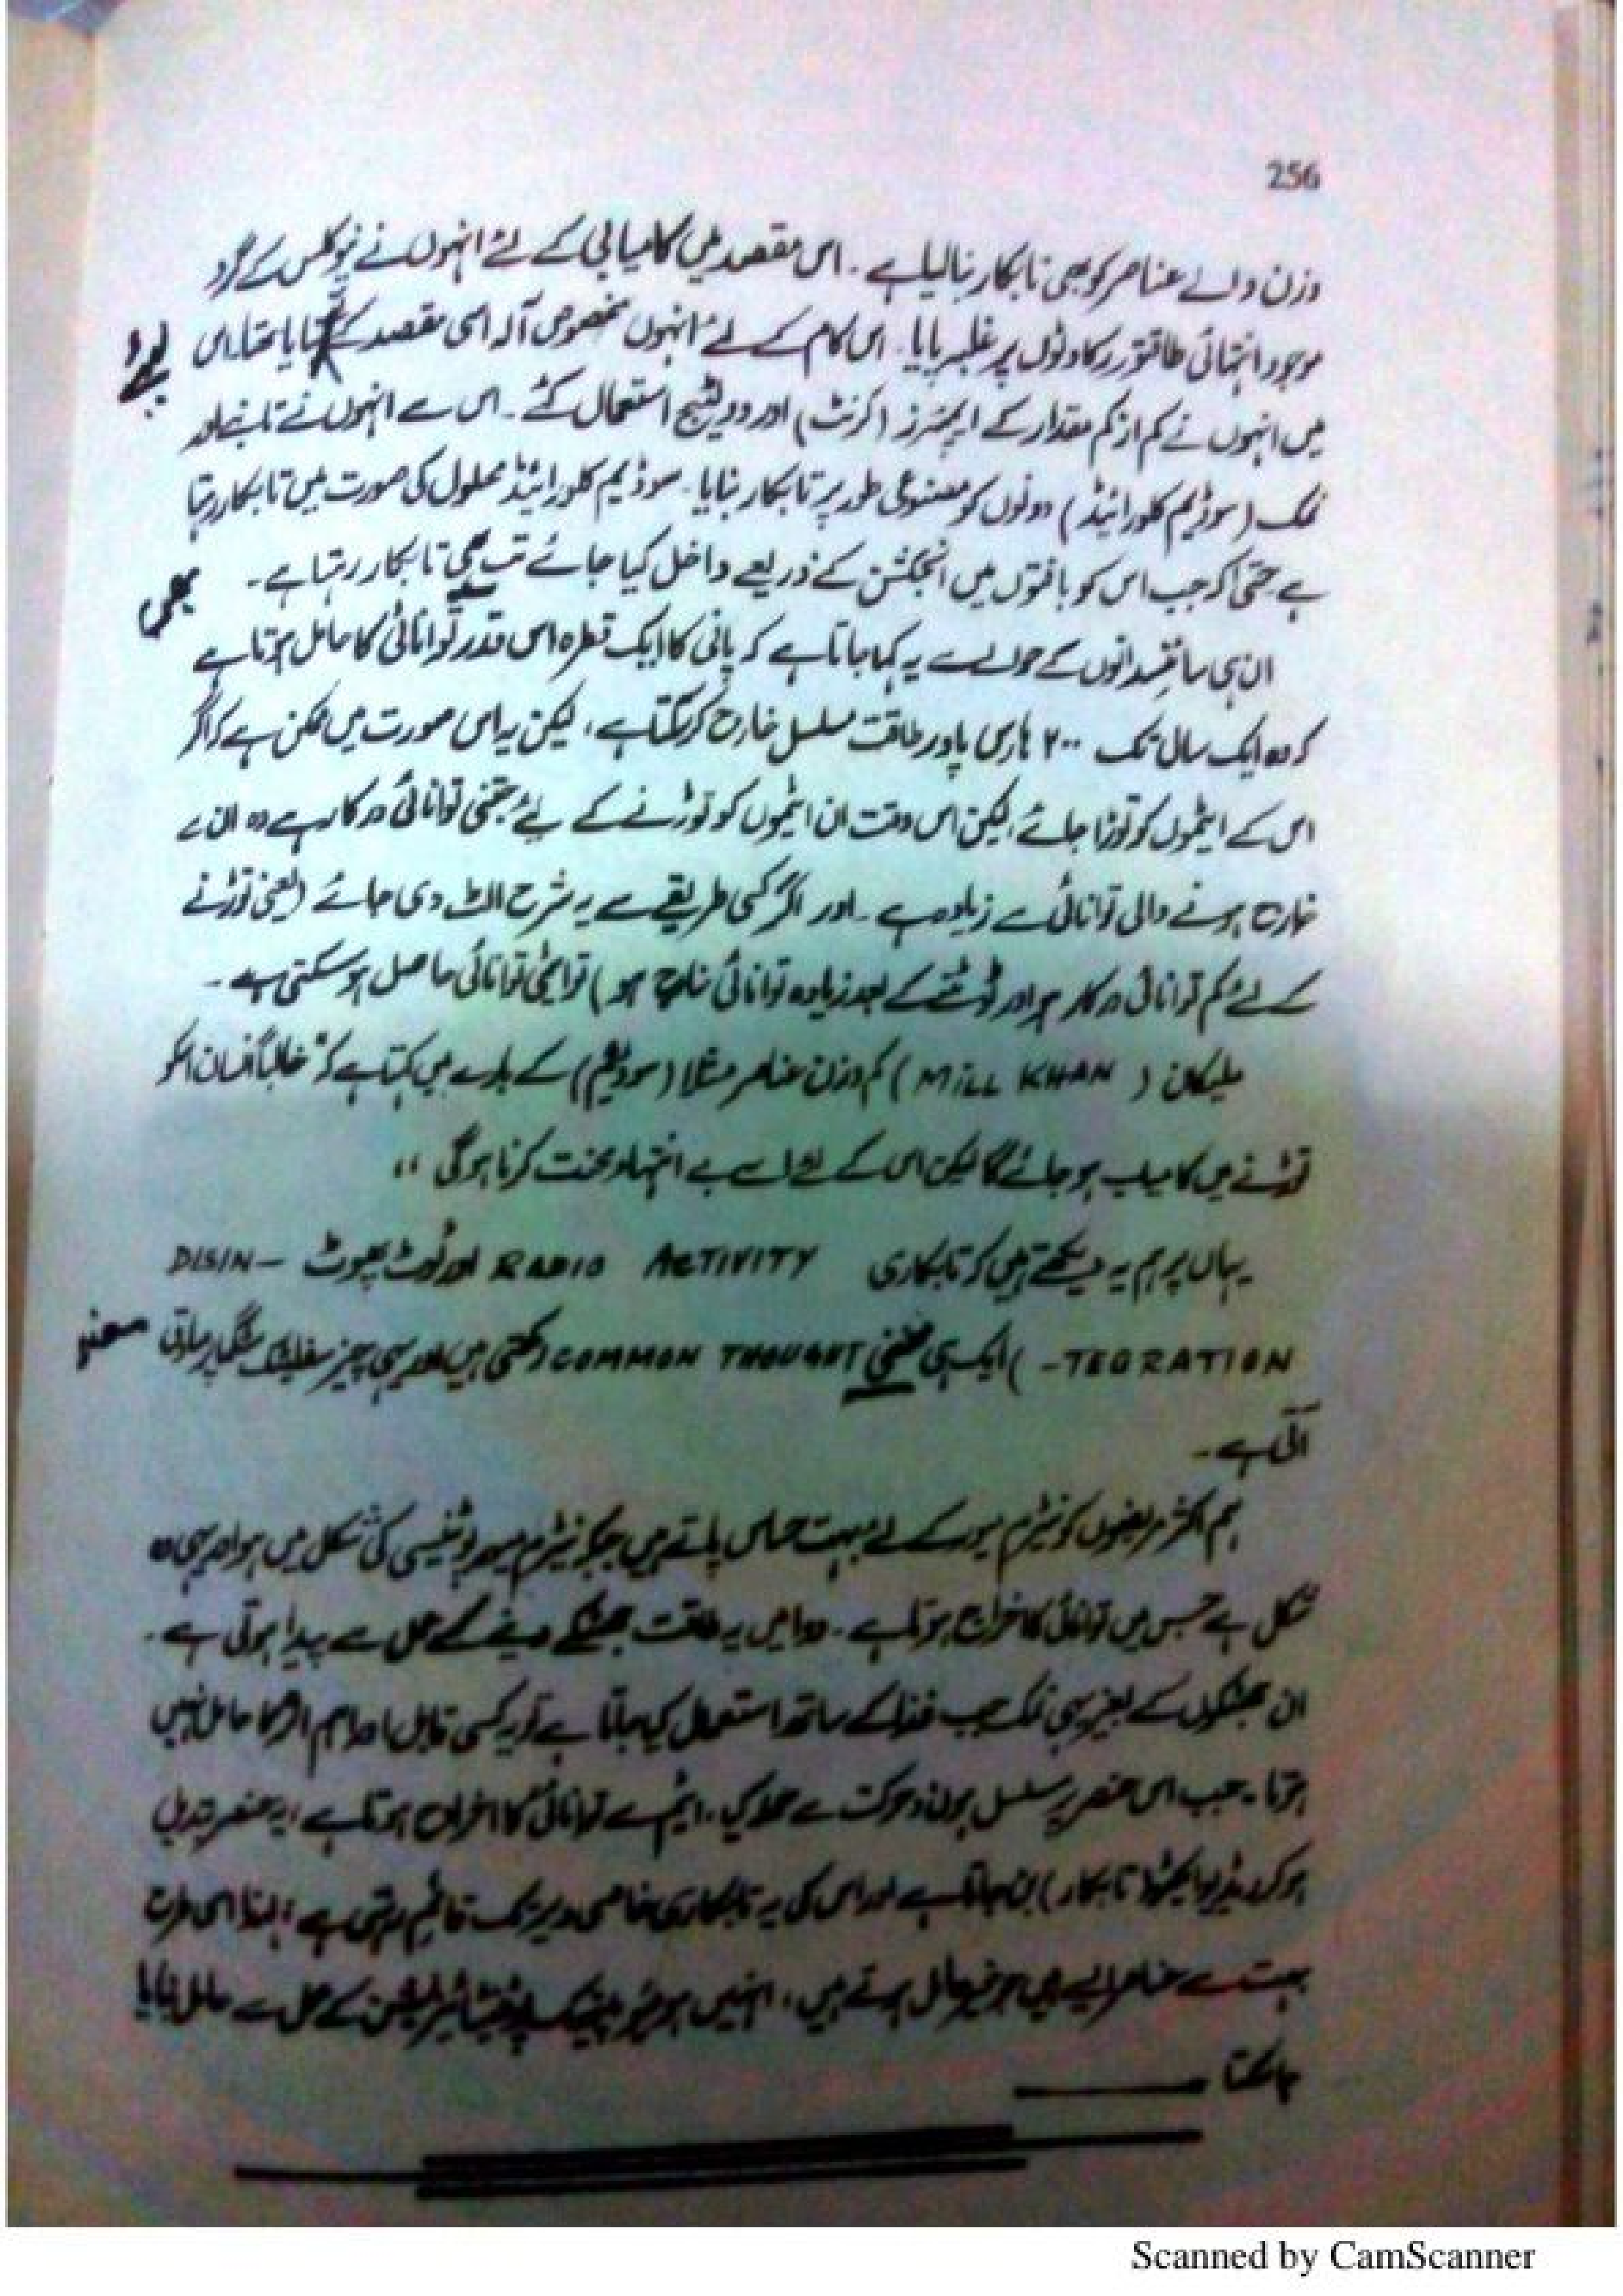 256
وزن والے عناصر کو بھی تابکار بنا لیا ہے ۔ اس مقصد میں کامیابی کے لئے انہوں نے نیوکلس کے گرد
موجود انتہائی طاقتور رکاوٹوں پر غلبہ پایا ۔ اس کام کے لئے انہوں مخصوص آلہ اسی مقصد کے بنایا تھا۔ اس
میں انہوں نے کم از کم مقدار کے ایمپئرز (کرنٹ) اور وولٹیج استعمال کئے ۔ اس سے انہوں نے تانبے اور
نمک (سوڈیم کلورائیڈ) دونوں کو مصنوعی طور پر تابکار بنایا ۔ سوڈیم کلورائیڈ محلول کی صورت میں تابکار رہتا
ہے حتیٰ کہ جب اس کو بافتوں میں انجکشن کے ذریعے داخل کیا جائے تب بھی تابکار رہتا ہے ۔
بھی
ان ہی سائنسدانوں کے حوالے سے یہ کہا جاتا ہے کہ پانی کا ایک قطرہ اس قدر توانائی کا حامل ہوتا ہے
کہ وہ ایک سال تک ۲۰۰ ہارس پاور طاقت مسلسل خارج کر سکتا ہے ، لیکن یہ اسی صورت میں ممکن ہے کہ اگر
اس کے ایٹموں کو توڑا جائے ، لیکن اس وقت ان ایٹموں کو توڑنے کے لئے جتنی توانائی درکار ہے وہ ان سے
خارج ہونے والی توانائی سے زیادہ ہے ۔ اور اگر کسی طریقے سے یہ شرح الٹ دی جائے (یعنی توڑنے
کے لئے کم توانائی درکار ہو اور ٹوٹنے کے بعد زیادہ توانائی خارج ہو) تو ایٹمی توانائی حاصل ہو سکتی ہے ۔
ملیکان (MILL KHAN) کم وزن عناصر مثلا (سوڈیم) کے بارے میں کہتا ہے کہ "غالباً انسان اسکو
توڑنے میں کامیاب ہو جائے گا لیکن اس کے لئے اسے بے انتہا محنت کرنا ہوگی "
یہاں پر ہم یہ دیکھتے ہیں کہ تابکاری RADIO ACTIVITY اور ٹوٹ پھوٹ DISIN-
-TEGRATION) ایک ہی COMMON THOUGHT رکھتی ہیں اور یہی چیز
آتی ہے ۔
ہم اکثر مریضوں کو نیٹرم میور کے لئے بہت حساس پاتے ہیں جبکہ نیٹرم میور پوٹینسی کی شکل میں ہو اور یہی وہ
شکل ہے جس میں توانائی کا اخراج ہوتا ہے ۔ دوا میں یہ طاقت جھٹکے دینے کے عمل سے پیدا ہوتی ہے ۔
ان جھٹکوں کے بغیر یہی نمک جب غذا کے ساتھ استعمال کیا جاتا ہے تو یہ کسی قابل اثر کا حامل نہیں
ہوتا ۔ جب اس عنصر پر مسلسل حرکت سے حملہ کیا ، ایٹم سے توانائی کا اخراج ہوتا ہے ، یہ عنصر تبدیل
ہو کر ریڈیو ایکٹو (تابکار) بن جاتا ہے اور اس کی یہ تابکاری خاصی دیر تک قائم رہتی ہے ؛ لہٰذا اسی طرح
بہت سے عناصر ایسے ہیں جو غیر عامل ہوتے ہیں ، انہیں ہومیوپیتھک پوٹینٹائزیشن کے عمل سے عامل بنایا
جا سکتا
Scanned by CamScanner